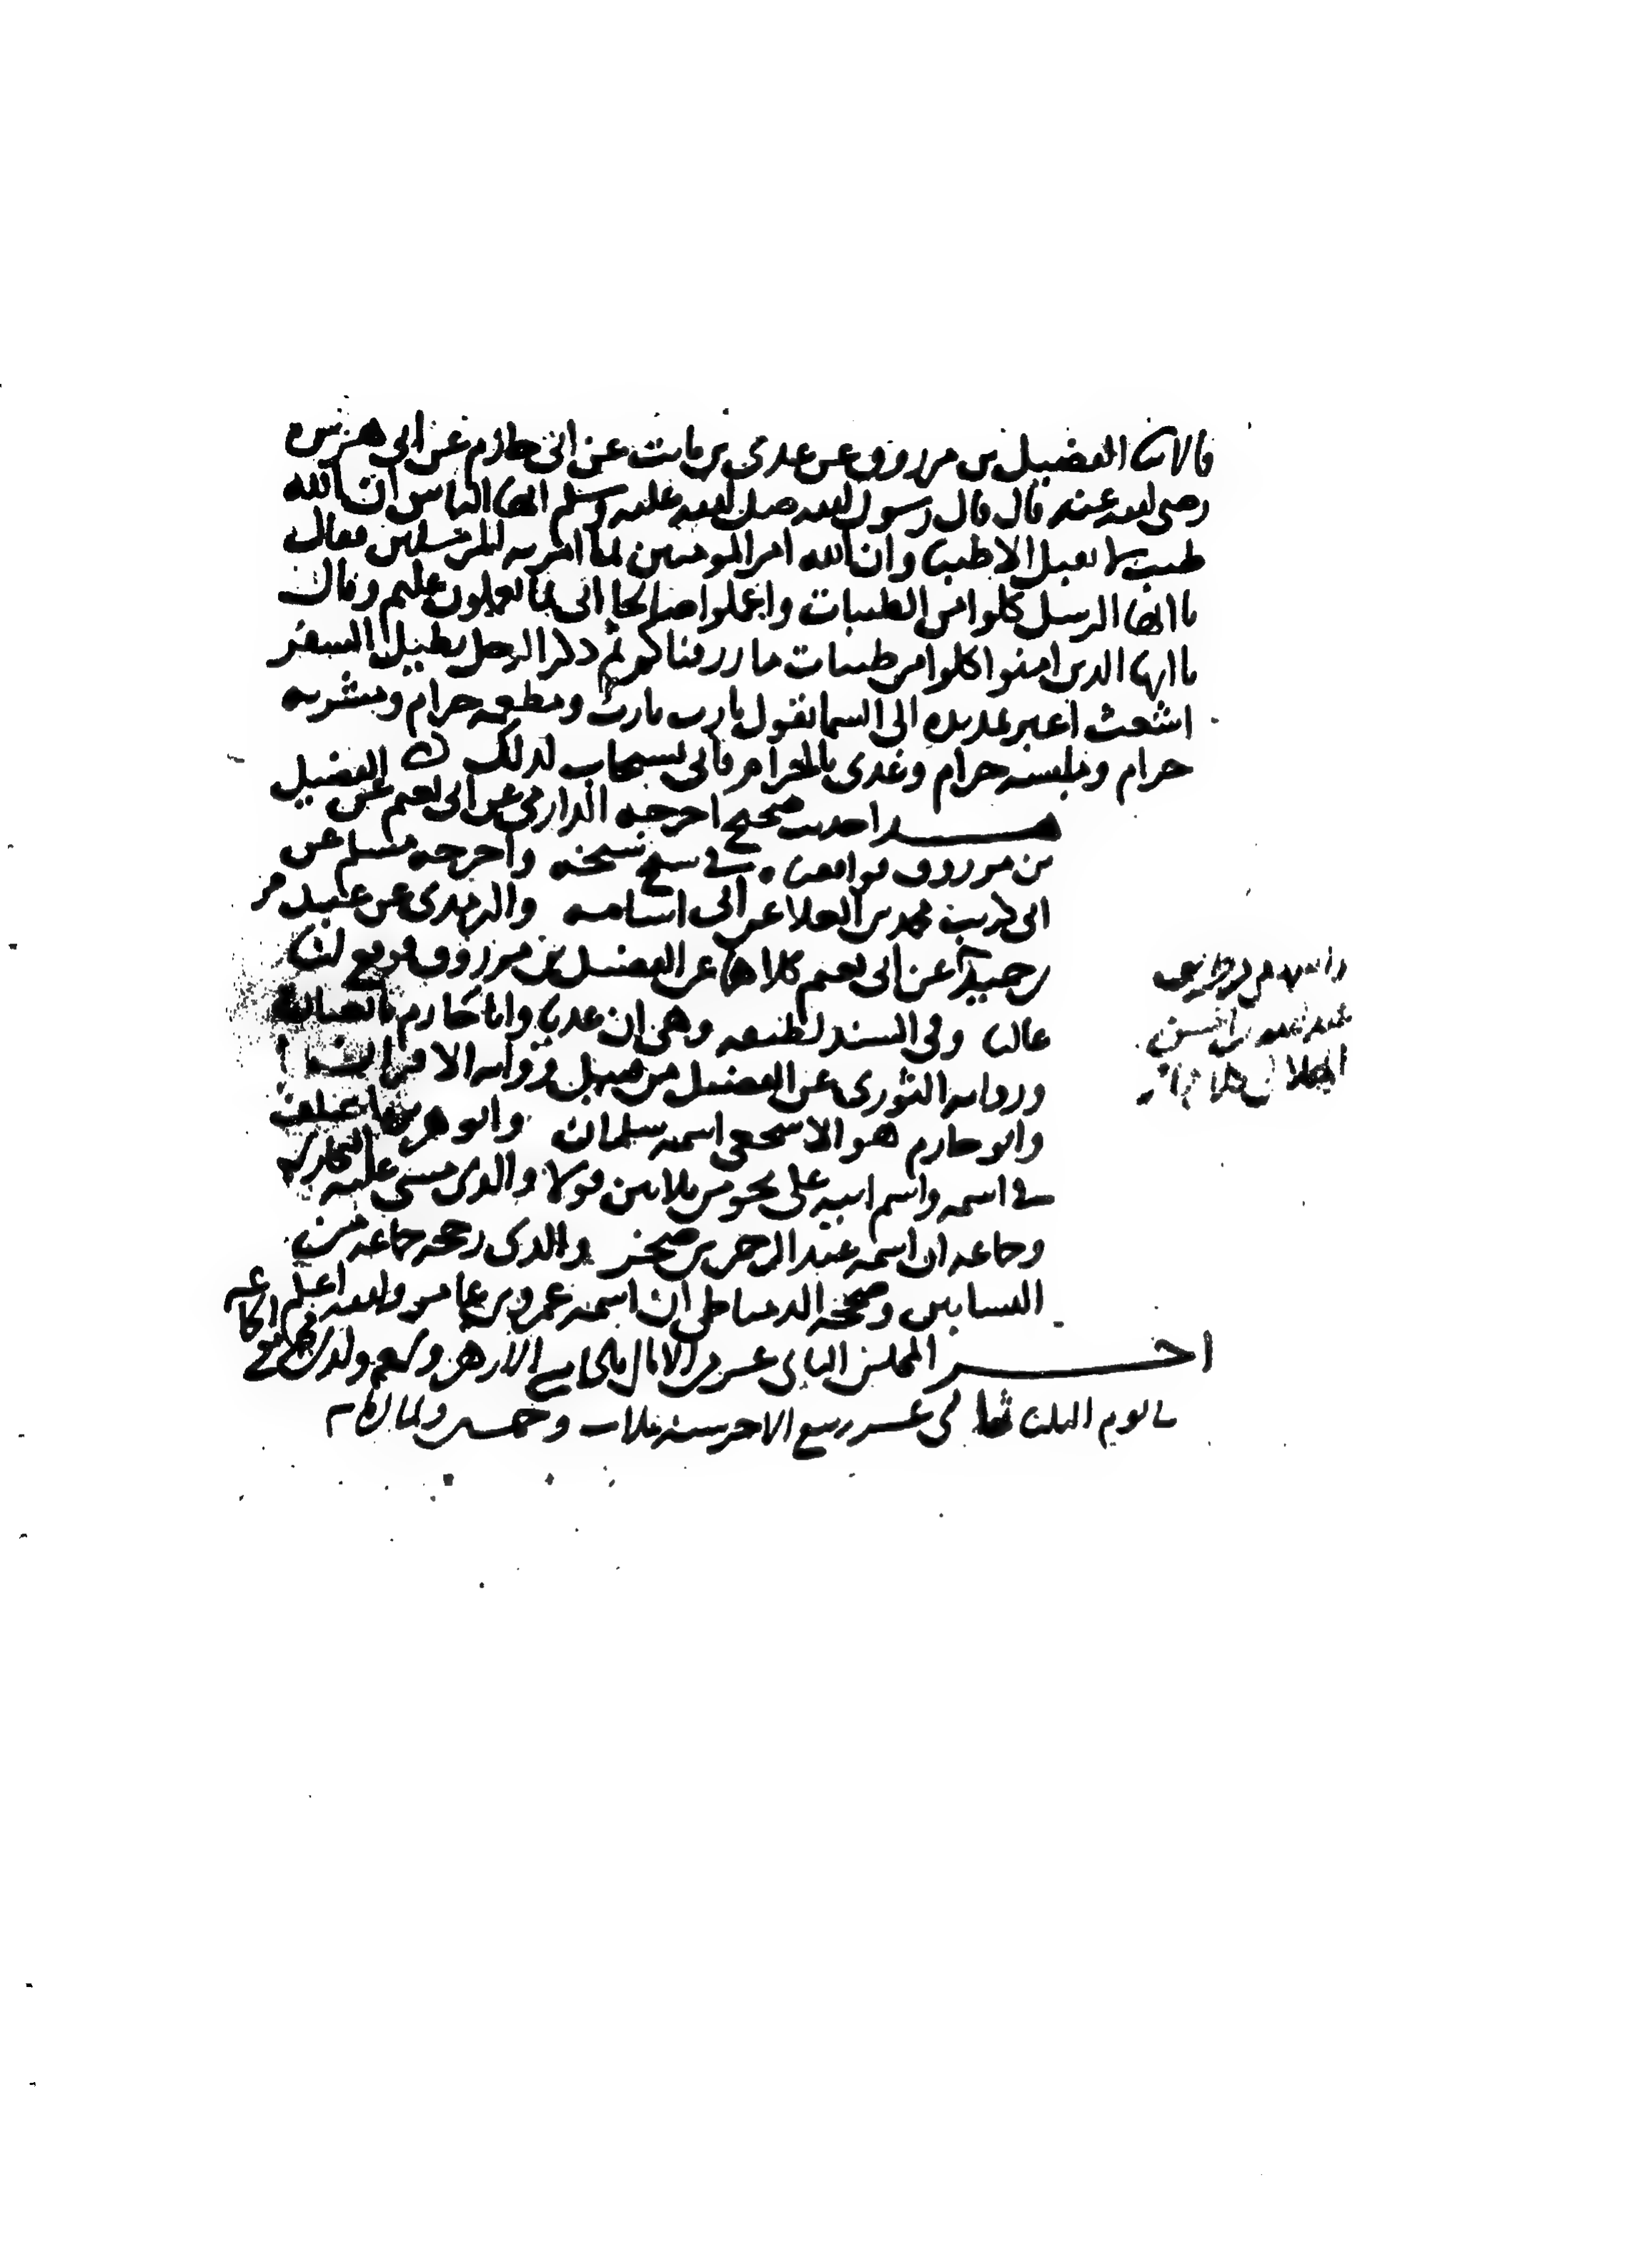 قالا ثنا الفضيل بن مرزوق عن عدي بن ثابت عن ابي حازم عن ابي هريرة
رضي الله عنه قال قال رسول الله صلى الله عليه وسلم ايها الناس ان الله
طيب لا يقبل الا طيبا وان الله امر المومنين بما امر به المرسلين فقال
يا ايها الرسل كلوا من الطيبات واعملوا صالحا اني بما تعملون عليم وقال
يا ايها الذين امنوا كلوا من طيبات ما رزقناكم ثم ذكر الرجل يطيل السفر
اشعث اغبر يمد يده الى السما يقول يا رب يا رب ومطعمه حرام ومشربه
حرام وملبسه حرام وغذي بالحرام فانى يستجاب لذلك
هذا حديث صحيح اخرجه الدارمي عن ابي نعيم عن الفضيل
بن مرزوق فوافقناه في شيخ شيخه واخرجه مسلم عن
ابي كريب محمد بن العلا عن ابي اسامه والترمذي عن عبد بن
حميد عن ابي نعيم كلاهما عن الفضيل بن مرزوق فوقع لنا
عاليا وفي السند لطيفه وهي ان عديا وابا حازم تابعيان
وروايه الثوري عن الفضيل من قبيل روايه الاقران
وابو حازم هو الاشجعي اسمه سلمان وابو هريرة اختلف
في اسمه واسم ابيه على نحو من ثلاثين قولا والذي مشى عليه البخاري
وجماعه ان اسمه عبد الرحمن بن صخر والذي رجحه جماعه من
النسابين وصححه الدمياطي ان اسمه عمرو بن عامر والله اعلم
اخر المجلس الثاني عشر من الامالي بالجامع الازهر
يوم الثلاثا ثاني عشر ربيع الاخر سنه ثلاث وخمسين وثمانمايه